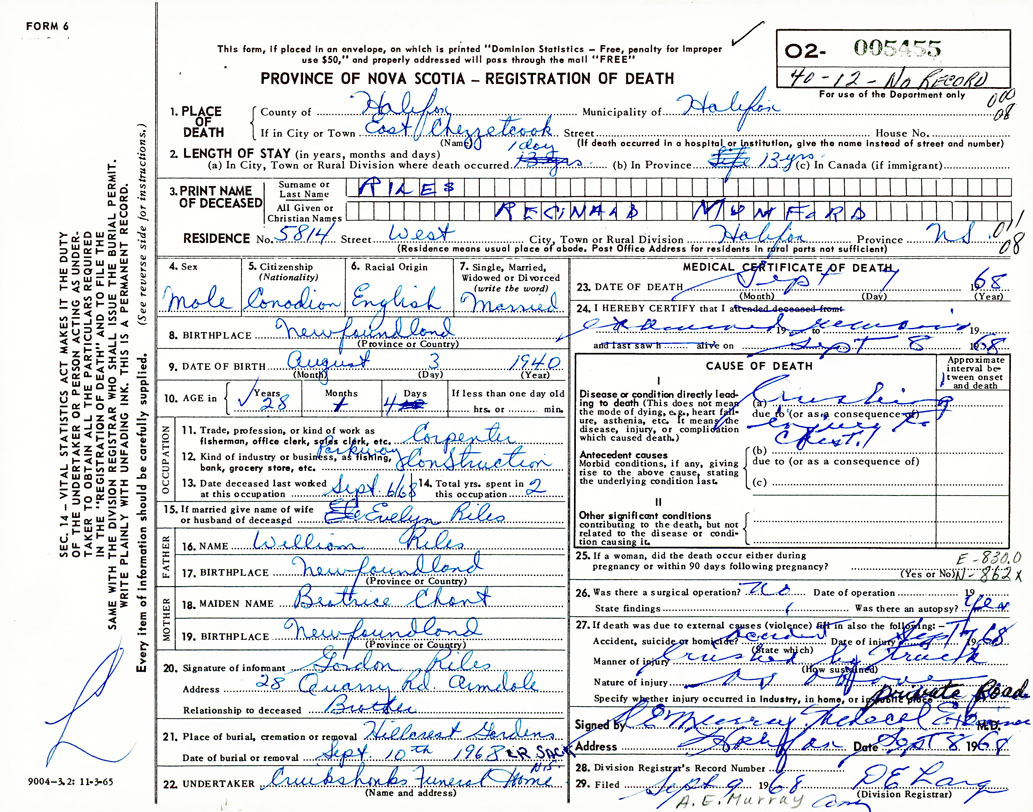 FORM 6
This form, if placed in an envelope, on which is printed "Dominion Statistics – Free, penalty for improper
use $50," and properly addressed will pass through the mail "FREE"
PROVINCE OF NOVA SCOTIA – REGISTRATION OF DEATH
O2- 005455
40-12-No RECORD
For use of the Department only
000
08
1. PLACE OF DEATH
County of Halifax Municipality of Halifax
If in City or Town East Chezzetcook Street House No.
(Name) (If death occurred in a hospital or institution, give the name instead of street and number)
2. LENGTH OF STAY (in years, months and days) 1 day
(a) In City, Town or Rural Division where death occurred 13 yrs. (b) In Province Life 13 yrs (c) In Canada (if immigrant)
3. PRINT NAME OF DECEASED
Surname or Last Name RILES
All Given or Christian Names REGINALD MUMFORD
RESIDENCE No. 5814 Street West City, Town or Rural Division Halifax Province N.S. 011
08
(Residence means usual place of abode. Post Office Address for residents in rural parts not sufficient)
4. Sex
Male
5. Citizenship (Nationality)
Canadian
6. Racial Origin
English
7. Single, Married, Widowed or Divorced (write the word)
Married
8. BIRTHPLACE Newfoundland
(Province or Country)
9. DATE OF BIRTH August 3 1940
(Month) (Day) (Year)
10. AGE in Years 28 Months 1 Days 4 If less than one day old hrs. or min.
OCCUPATION
11. Trade, profession, or kind of work as fisherman, office clerk, sales clerk, etc. Carpenter
12. Kind of industry or business, as fishing, bank, grocery store, etc. Parkway Construction
13. Date deceased last worked at this occupation Sept. 6/68
14. Total yrs. spent in this occupation 2
15. If married give name of wife or husband of deceased Evelyn Riles
FATHER
16. NAME William Riles
17. BIRTHPLACE Newfoundland
(Province or Country)
MOTHER
18. MAIDEN NAME Beatrice Chant
19. BIRTHPLACE Newfoundland
(Province or Country)
20. Signature of informant Gordon Riles
Address 28 Quarry Rd. Armdale
Relationship to deceased Brother
21. Place of burial, cremation or removal Hillcrest Gardens
Date of burial or removal Sept 10th 1968 LR SACK N.S.
22. UNDERTAKER Cruikshanks Funeral Home
(Name and address)
MEDICAL CERTIFICATE OF DEATH
23. DATE OF DEATH Sept 7 1968
(Month) (Day) (Year)
24. I HEREBY CERTIFY that I attended deceased from
examined remains 19 to 19
and last saw h alive on Sept 8 1968
CAUSE OF DEATH
Approximate interval between onset and death
I
Disease or condition directly leading to death (This does not mean the mode of dying, e.g., heart failure, asthenia, etc. It means the disease, injury, or complication which caused death.)
(a) Crushing
due to (or as a consequence of)
injury to
chest.
Antecedent causes
Morbid conditions, if any, giving rise to the above cause, stating the underlying condition last.
(b)
due to (or as a consequence of)
(c)
II
Other significant conditions
contributing to the death, but not related to the disease or condition causing it.
25. If a woman, did the death occur either during pregnancy or within 90 days following pregnancy?
(Yes or No)
E-830.0
N-862X
26. Was there a surgical operation? no Date of operation 19
State findings Was there an autopsy? Yes
27. If death was due to external causes (violence) fill in also the following:–
Accident, suicide or homicide? accident Date of injury Sept 7 1968
(State which)
Manner of injury Crushed by truck
(How sustained)
Nature of injury as above
Specify whether injury occurred in Industry, in home, or in public place private Road
Signed by Murray Medical Examiner M.D.
Address Halifax Date Sept 8 1968
28. Division Registrar's Record Number
29. Filed Sept 9 1968 D E Lang
(Division Registrar)
A. E. Murray
SEC. 14 – VITAL STATISTICS ACT MAKES IT THE DUTY
OF THE UNDERTAKER OR PERSON ACTING AS UNDER-
TAKER TO OBTAIN ALL THE PARTICULARS REQUIRED
IN THE "REGISTRATION OF DEATH" AND TO FILE THE
SAME WITH THE DIVISION REGISTRAR WHO SHALL ISSUE THE BURIAL PERMIT.
WRITE PLAINLY WITH UNFADING INK. THIS IS A PERMANENT RECORD.
Every item of information should be carefully supplied. (See reverse side for instructions.)
9004-3.2: 11-3-65